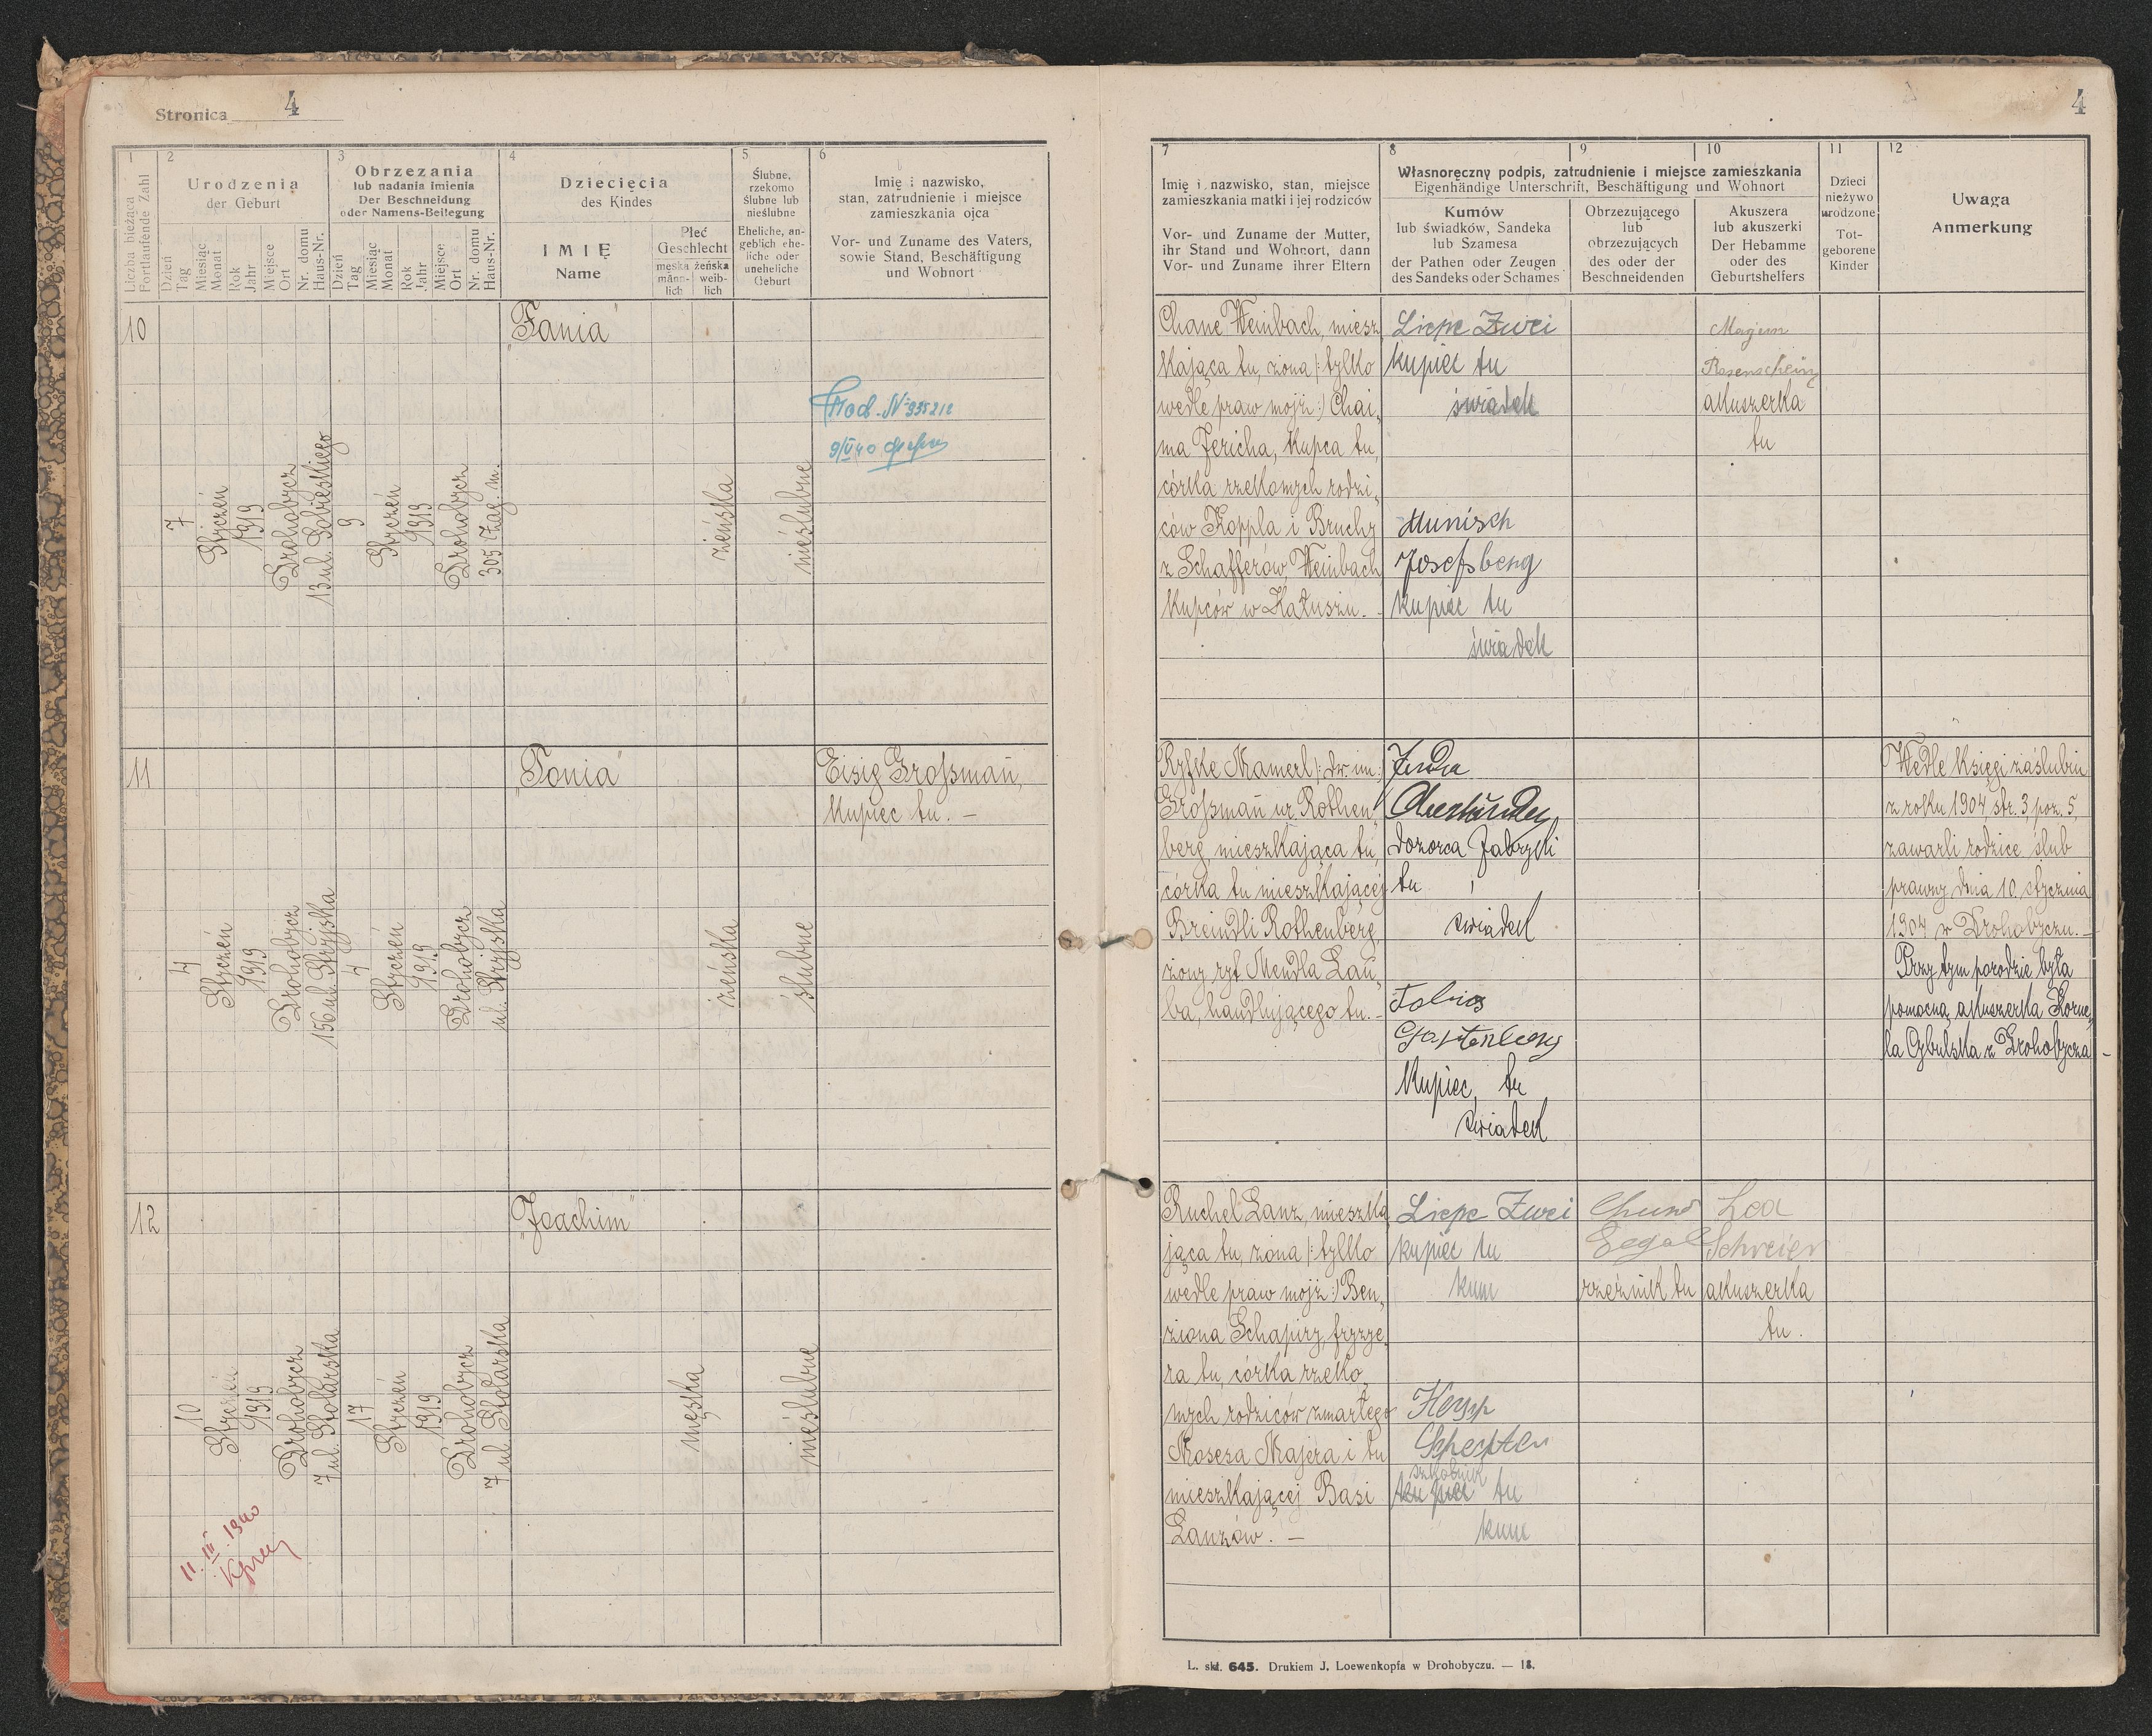 Stronica 4
4
1
2
3
4
5
6
7
8
9
10
11
12
Liczba bieżąca
Fortlaufende Zahl
Urodzenia
der Geburt
Dzień
Tag
Miesiąc
Monat
Rok
Jahr
Miejsce
Ort
Nr. domu
Haus-Nr.
Obrzezania
lub nadania imienia
Der Beschneidung
oder Namens-Beilegung
Dzień
Tag
Miesiąc
Monat
Rok
Jahr
Miejsce
Ort
Nr. domu
Haus-Nr.
Dziecięcia
des Kindes
IMIĘ
Name
Płeć
Geschlecht
męska
männ-
lich
żeńska
weib-
lich
Ślubne,
rzekomo
ślubne lub
nieślubne
Eheliche, an-
geblich ehe-
liche oder
uneheliche
Geburt
Imię i nazwisko,
stan, zatrudnienie i miejsce
zamieszkania ojca
Vor- und Zuname des Vaters,
sowie Stand, Beschäftigung
und Wohnort
Imię i nazwisko, stan, miejsce
zamieszkania matki i jej rodziców
Vor- und Zuname der Mutter,
ihr Stand und Wohnort, dann
Vor- und Zuname ihrer Eltern
Własnoręczny podpis, zatrudnienie i miejsce zamieszkania
Eigenhändige Unterschrift, Beschäftigung und Wohnort
Kumów
lub świadków, Sandeka
lub Szamesa
der Pathen oder Zeugen
des Sandeks oder Schames
Obrzezującego
lub
obrzezujących
des oder der
Beschneidenden
Akuszera
lub akuszerki
Der Hebamme
oder des
Geburtshelfers
Dzieci
nieżywo
urodzone
Tot-
geborene
Kinder
Uwaga
Anmerkung
10
7
Styczeń
1919
Drohobycz
13 ul. Sobieskiego
9
Styczeń
1919
Drohobycz
305 Zag. m.
"Fania"
żeńska
nieślubne
9/IV 40
Chane Weinbach, miesz
kająca tu, żona /: tylko
wedle praw mojż :/ Chai„
ma Jericha, kupca tu,
córka rzekomych rodzi„
ców Koppla i Bruchy
z Schafferów Weinbach
kupców w Kałuszu. –
Liepe Zwei
kupiec tu
świadek
Munisch
Josefsberg
kupiec tu
świadek
Rosenschein
akuszerka
tu
11
4
Styczeń
1919
Drohobycz
156 ul. Stryjska
4
Styczeń
1919
Drohobycz
ul. Stryjska
"Tonia"
żeńska
ślubne
Eisig Großmań,
kupiec tu. –
Ryfke Kamerl /: dw. im :/
Großmań ur. Rothen„
berg, mieszkająca tu,
córka tu mieszkającej
Breindli Rothenberg,
żony ryt Mendla Lau„
ba, handlującego tu. –
dozorca fabryki
tu
świadek
Tobias
Gartenberg
Kupiec, tu
świadek
Wedle księgi zaślubin
z roku 1904 str. 3, poz. 5,
zawarli rodzice ślub
prawny dnia 10. stycznia
1904 w Drohobyczu. –
Przy tym porodzie była
pomocną akuszerka Korne„
la Cybulska z Drohobycza –
12
10
Styczeń
1919
Drohobycz
7 ul. Stolarska
17
Styczeń
1919
Drohobycz
7 ul. Stolarska
"Joachim"
męska
nieślubne
11. III. 1940
Ruchel Lanz, mieszka
jąca tu, żona /: tylko
wedle praw mojż :/ Ben„
ziona Schapiry, fryzye„
ra tu, córka rzeko„
mych rodziców zmarłego
Mosesa Majera i tu
mieszkającej Basi
Lanzów. –
Liepe Zwei
kupiec tu
kum
Schechter
szkolnik
kupiec tu
kum
rzeźnik tu
Lea
Schreier
akuszerka
tu.
L. skł. 645. Drukiem J. Loewenkopfa w Drohobyczu. — 18.